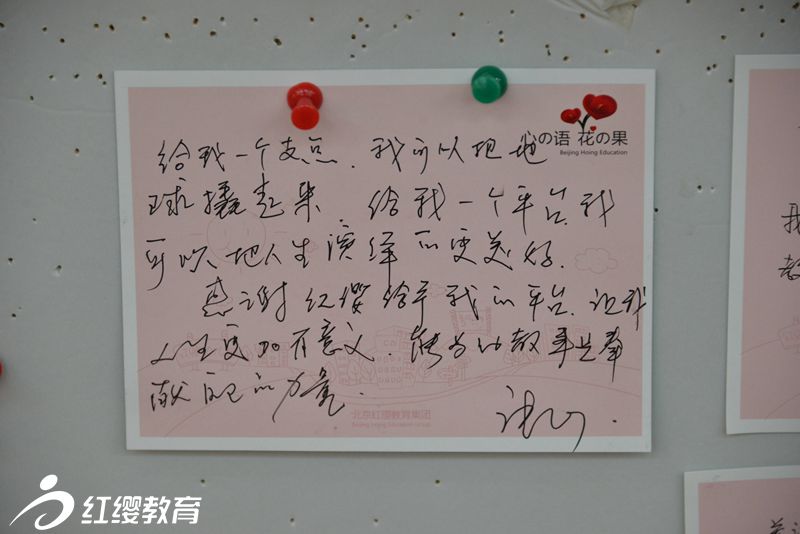 心の语 花の果
Beijing Hoing Education
给我一个支点，我可以把地
球撬起来，给我一个平台，我
可以把人生演绎的更美好.
感谢红缨给予我的平台，让我
人生更加有意义，能为幼教事业奉
献自己的力量.
北京红缨教育集团
Beijing Hoing Education Group
红缨教育